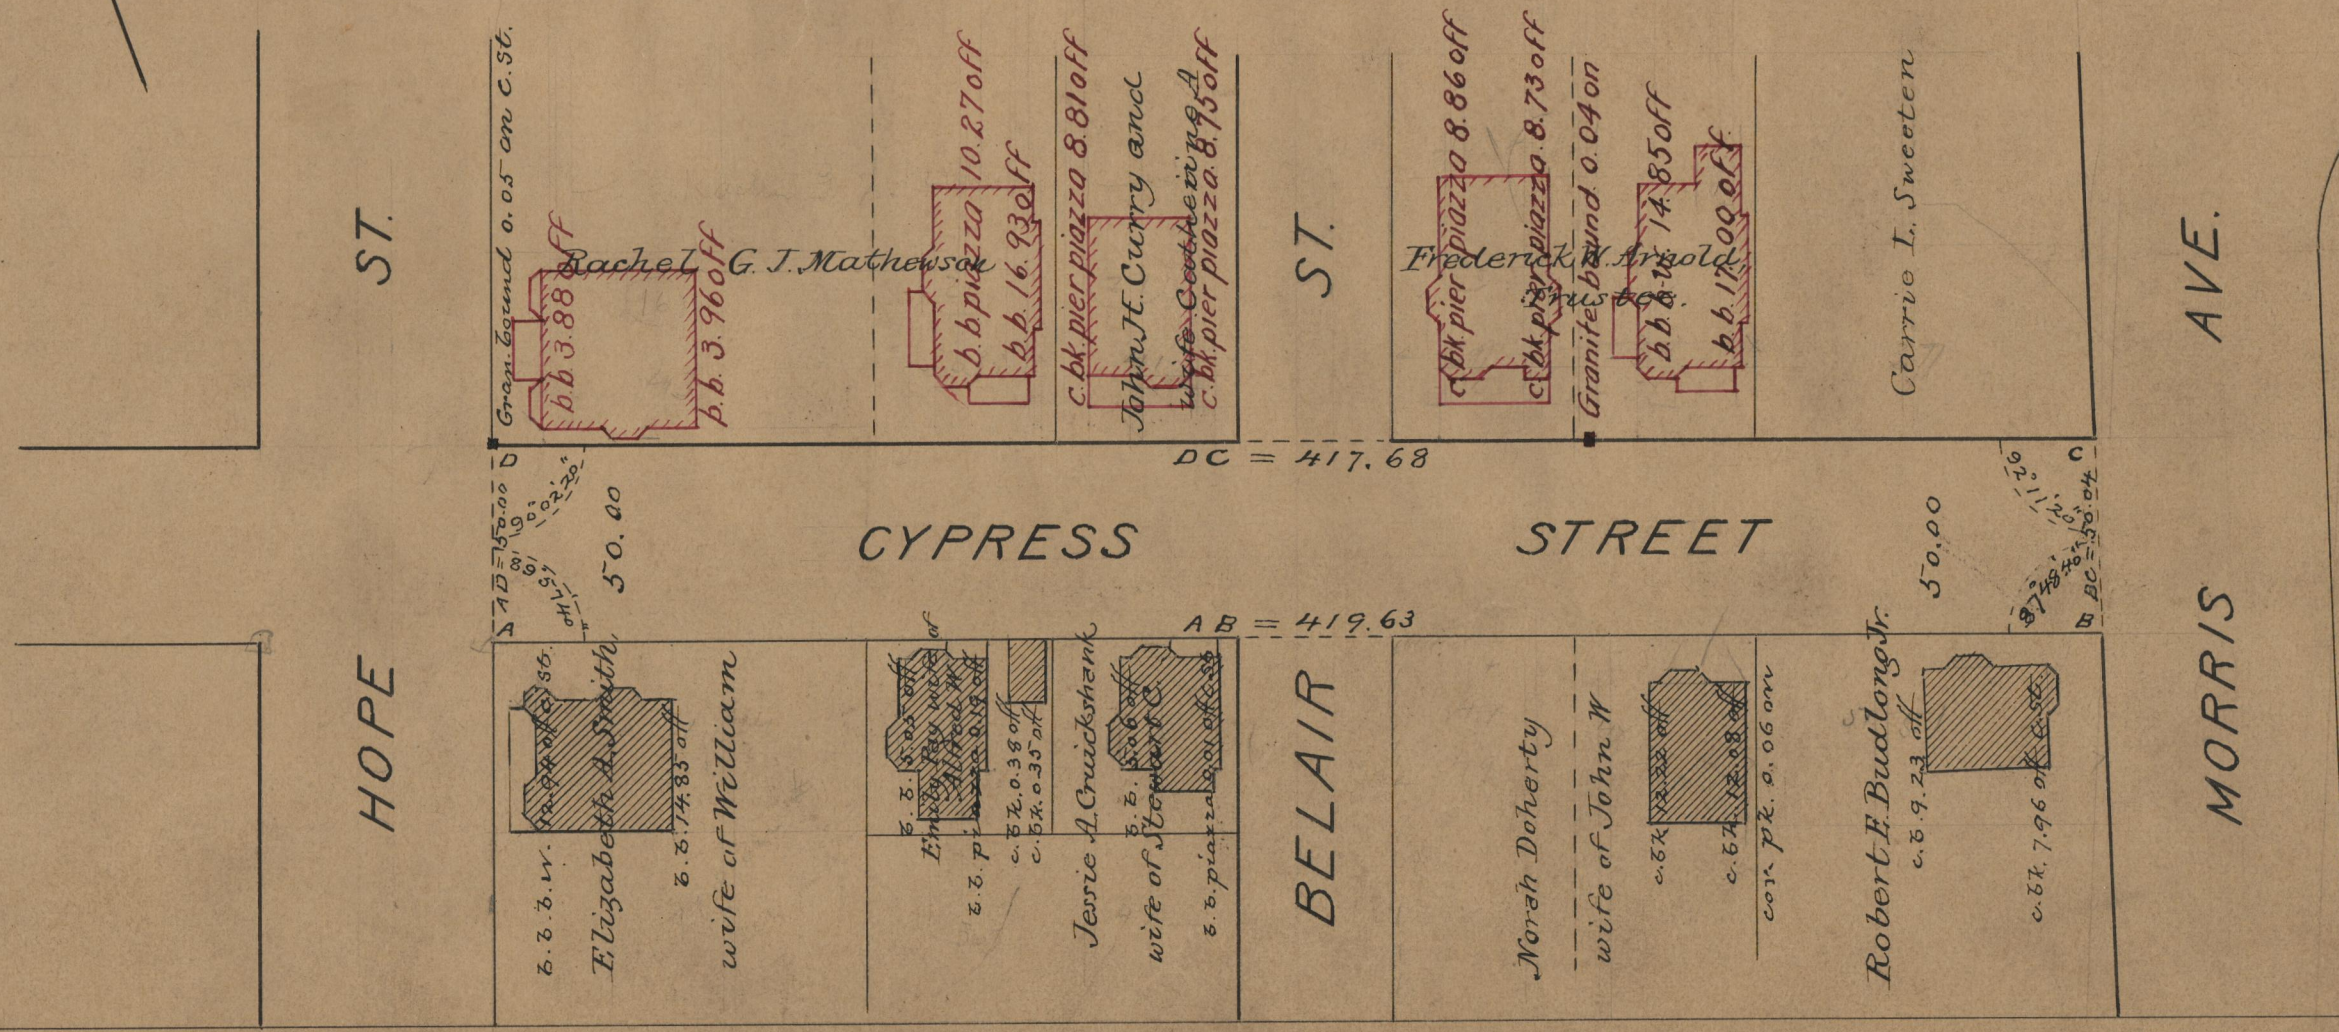 HOPE ST.
Gran. bound 0.05 on C. St.
b.b. 3.88 off
Rachel G. J. Mathewson
b.b. 3.96 off
b.b. piazza 10.27 off
b.b. 16.93 off
c.bk. pier piazza 8.81 off
John H. Curry and
wife Catherine A
c.bk. pier piazza 8.75 off
BELAIR ST.
c.bk. pier piazza 8.86 off
c.bk. pier piazza 8.73 off
Frederick W. Arnold
Trustee.
Granite bound 0.04 on
b.b.b.w. 14.85 off
b.b. 17.00 off
Carrie L. Sweeten
MORRIS AVE.
D
DC = 417.68
C
AD = 50.00
50.00
CYPRESS STREET
50.00
BC = 50.04
A
AB = 419.63
B
b.b.b.w. 12.94 off C. St.
Elizabeth A. Smith,
b.b. 14.85 off
wife of William
b.b. 5.05 off
Emily Ray wife of
Alfred W.
b.b. piazza 0.19 off
c.bk. 0.38 off
c.bk. 0.35 off
Jessie A. Cruickshank
b.b. 5.06 off
wife of Stewart C.
b.b. piazza 0.01 off C. St.
Norah Doherty
wife of John W
c.bk. 12.22 off
c.bk. 12.08 off
cor. pk. 0.06 on
Robert E. Budlong Jr.
c.b. 9.23 off
c.bk. 7.96 off C. St.